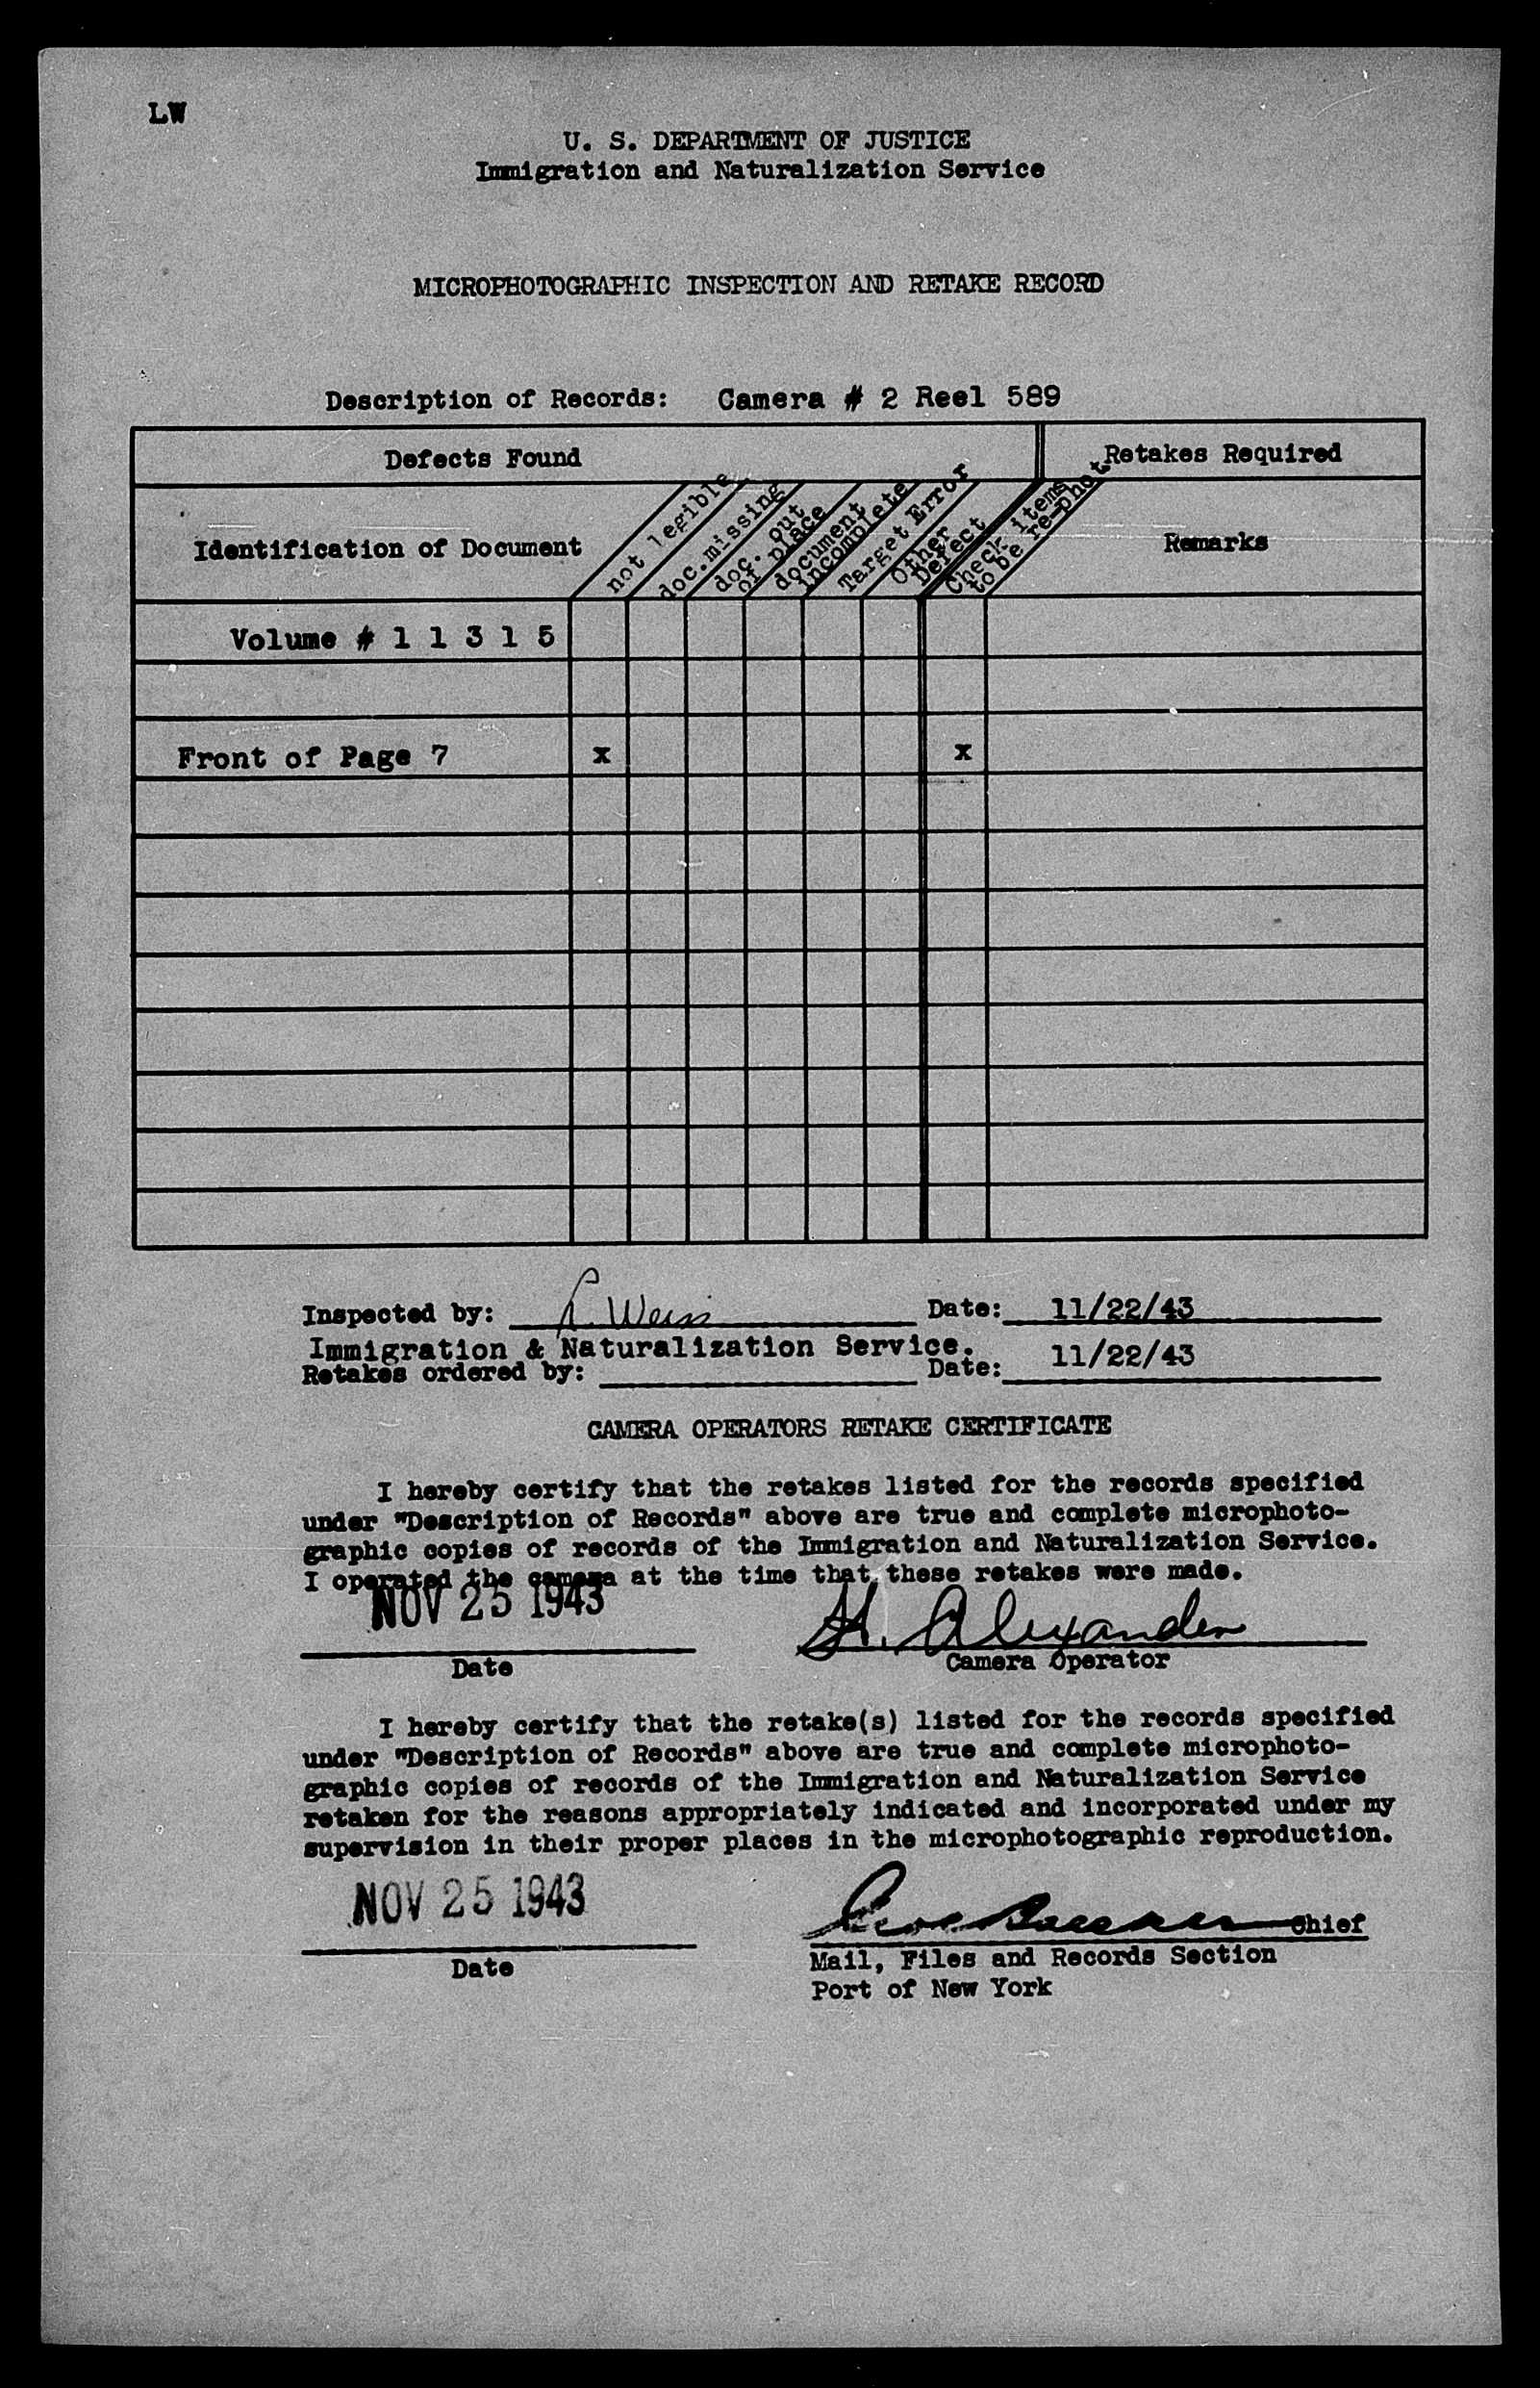 LW
U. S. DEPARTMENT OF JUSTICE
Immigration and Naturalization Service
MICROPHOTOGRAPHIC INSPECTION AND RETAKE RECORD
Description of Records: Camera # 2 Reel 589
Defects Found
Retakes Required
Identification of Document
not legible
doc.missing
doc. out
of place
document
incomplete
Target Error
Other
Defect
Check items
to be re-phot
Remarks
Volume # 1 1 3 1 5
Front of Page 7 x x
Inspected by: L. Weiss Date: 11/22/43
Immigration & Naturalization Service. 11/22/43
Retakes ordered by: Date:
CAMERA OPERATORS RETAKE CERTIFICATE
I hereby certify that the retakes listed for the records specified
under "Description of Records" above are true and complete microphoto-
graphic copies of records of the Immigration and Naturalization Service.
I operated the camera at the time that these retakes were made.
NOV 25 1943 H. Alexander
Date Camera Operator
I hereby certify that the retake(s) listed for the records specified
under "Description of Records" above are true and complete microphoto-
graphic copies of records of the Immigration and Naturalization Service
retaken for the reasons appropriately indicated and incorporated under my
supervision in their proper places in the microphotographic reproduction.
NOV 25 1943 Chief
Date Mail, Files and Records Section
Port of New York